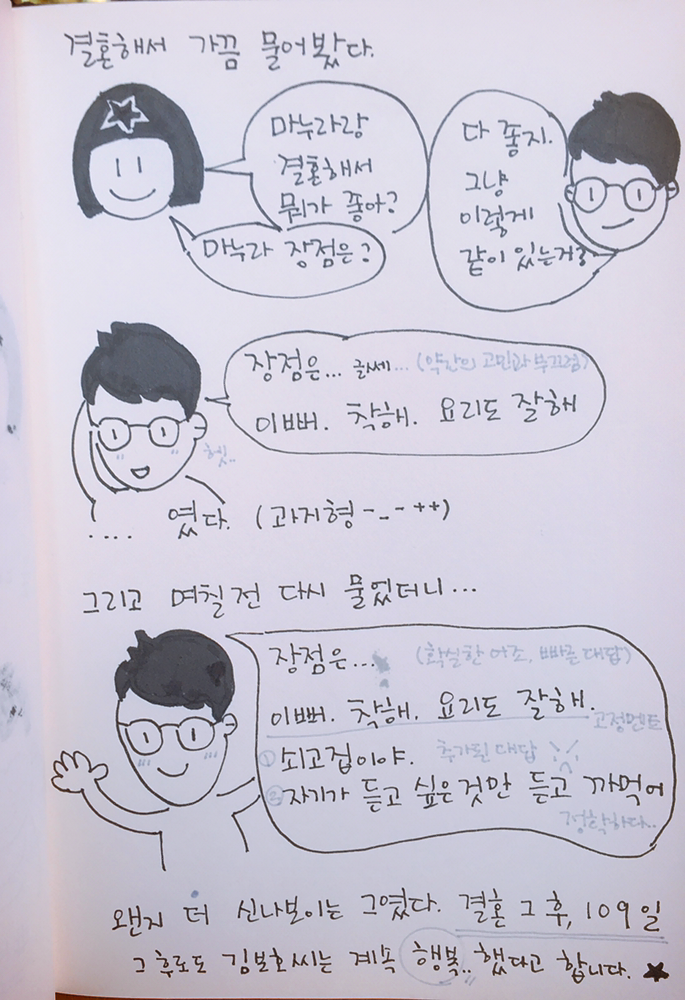 결혼해서 가끔 물어봤다.
마누라랑
결혼해서
뭐가 좋아?
마누라 장점은?
다 좋지.
그냥
이렇게
같이 있는거?
장점은... 글쎄... (약간의 고민과 부끄럼)
이뻐. 착해. 요리도 잘해
헷..
.... 였다. (과지형 -_- ++)
그리고 며칠전 다시 물었더니...
장점은... (확실한 어조, 빠른 대답)
이뻐. 착해. 요리도 잘해.
고정멘트
① 쇠고집이야. 추가된 대답
② 자기가 듣고 싶은것만 듣고 까먹어
정확하다..
왠지 더 신나보이는 그였다. 결혼 그 후, 109일
그 후로도 김보호씨는 계속 행복.. 했다고 합니다. ★